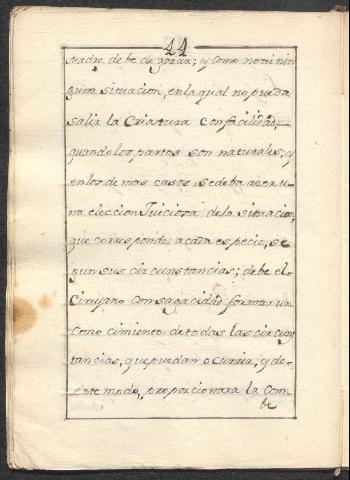 44
Madre debe de gozar; y como no ai nin
guna situacion, en la qual no pueda
salir la Criatura con facilidad,
quando los partos son naturales; y
en los demas casos se deba aver u-
na eleccion Juiciosa de la situacion,
que corresponde a cada especie, se
gun sus circunstancias; debe el
Cirujano con sagacidad formar un
conocimiento de todas las circuns
tancias, que puedan ocurrir, y de
este modo, proporcionara la Com
be